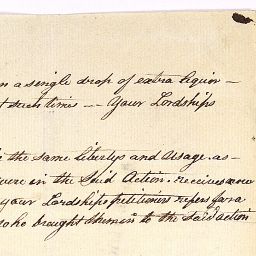 n a single drop of extra liquor —
t such times — — Your Lordships
the same libertys and usage as
were in the Said Action: receives now
your Lordships petitioners refers for a
who brought them in to the said action